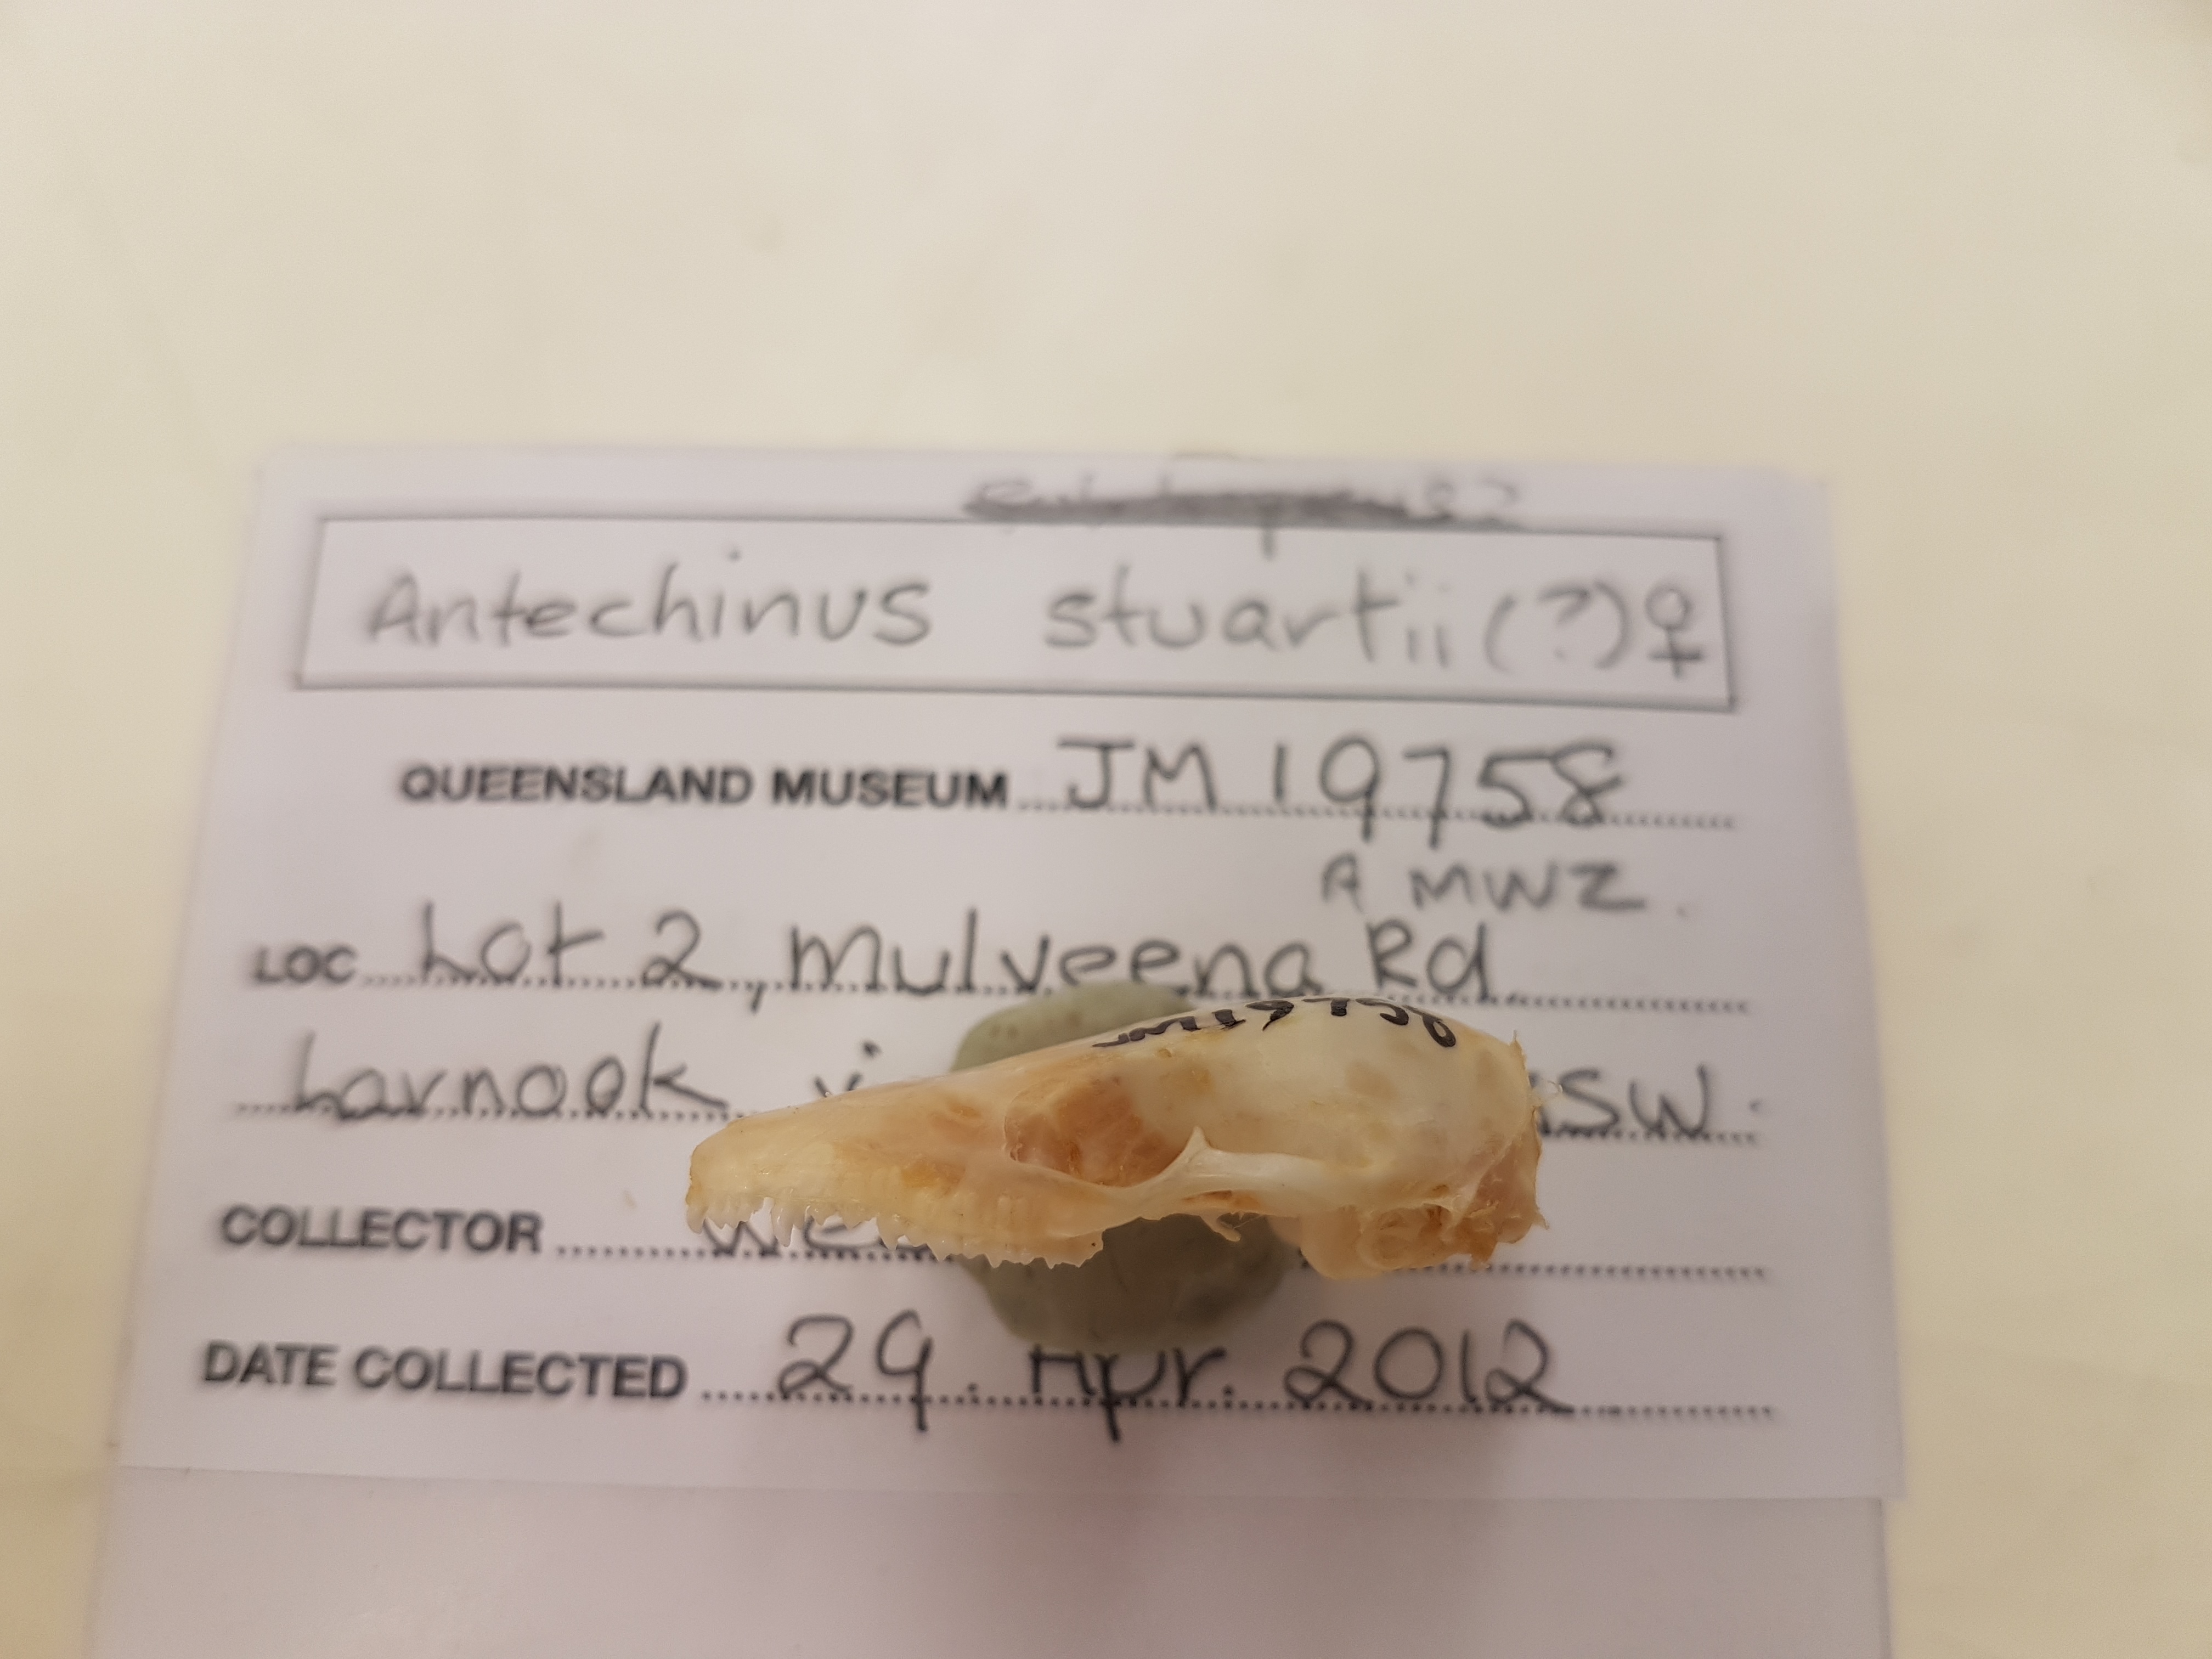 Antechinus stuartii (?) ♀
QUEENSLAND MUSEUM JM 19758
A MWZ.
LOC Lot 2, Mulveena Rd
Larnook
SW.
COLLECTOR
DATE COLLECTED 29. Apr. 2012
JM19758